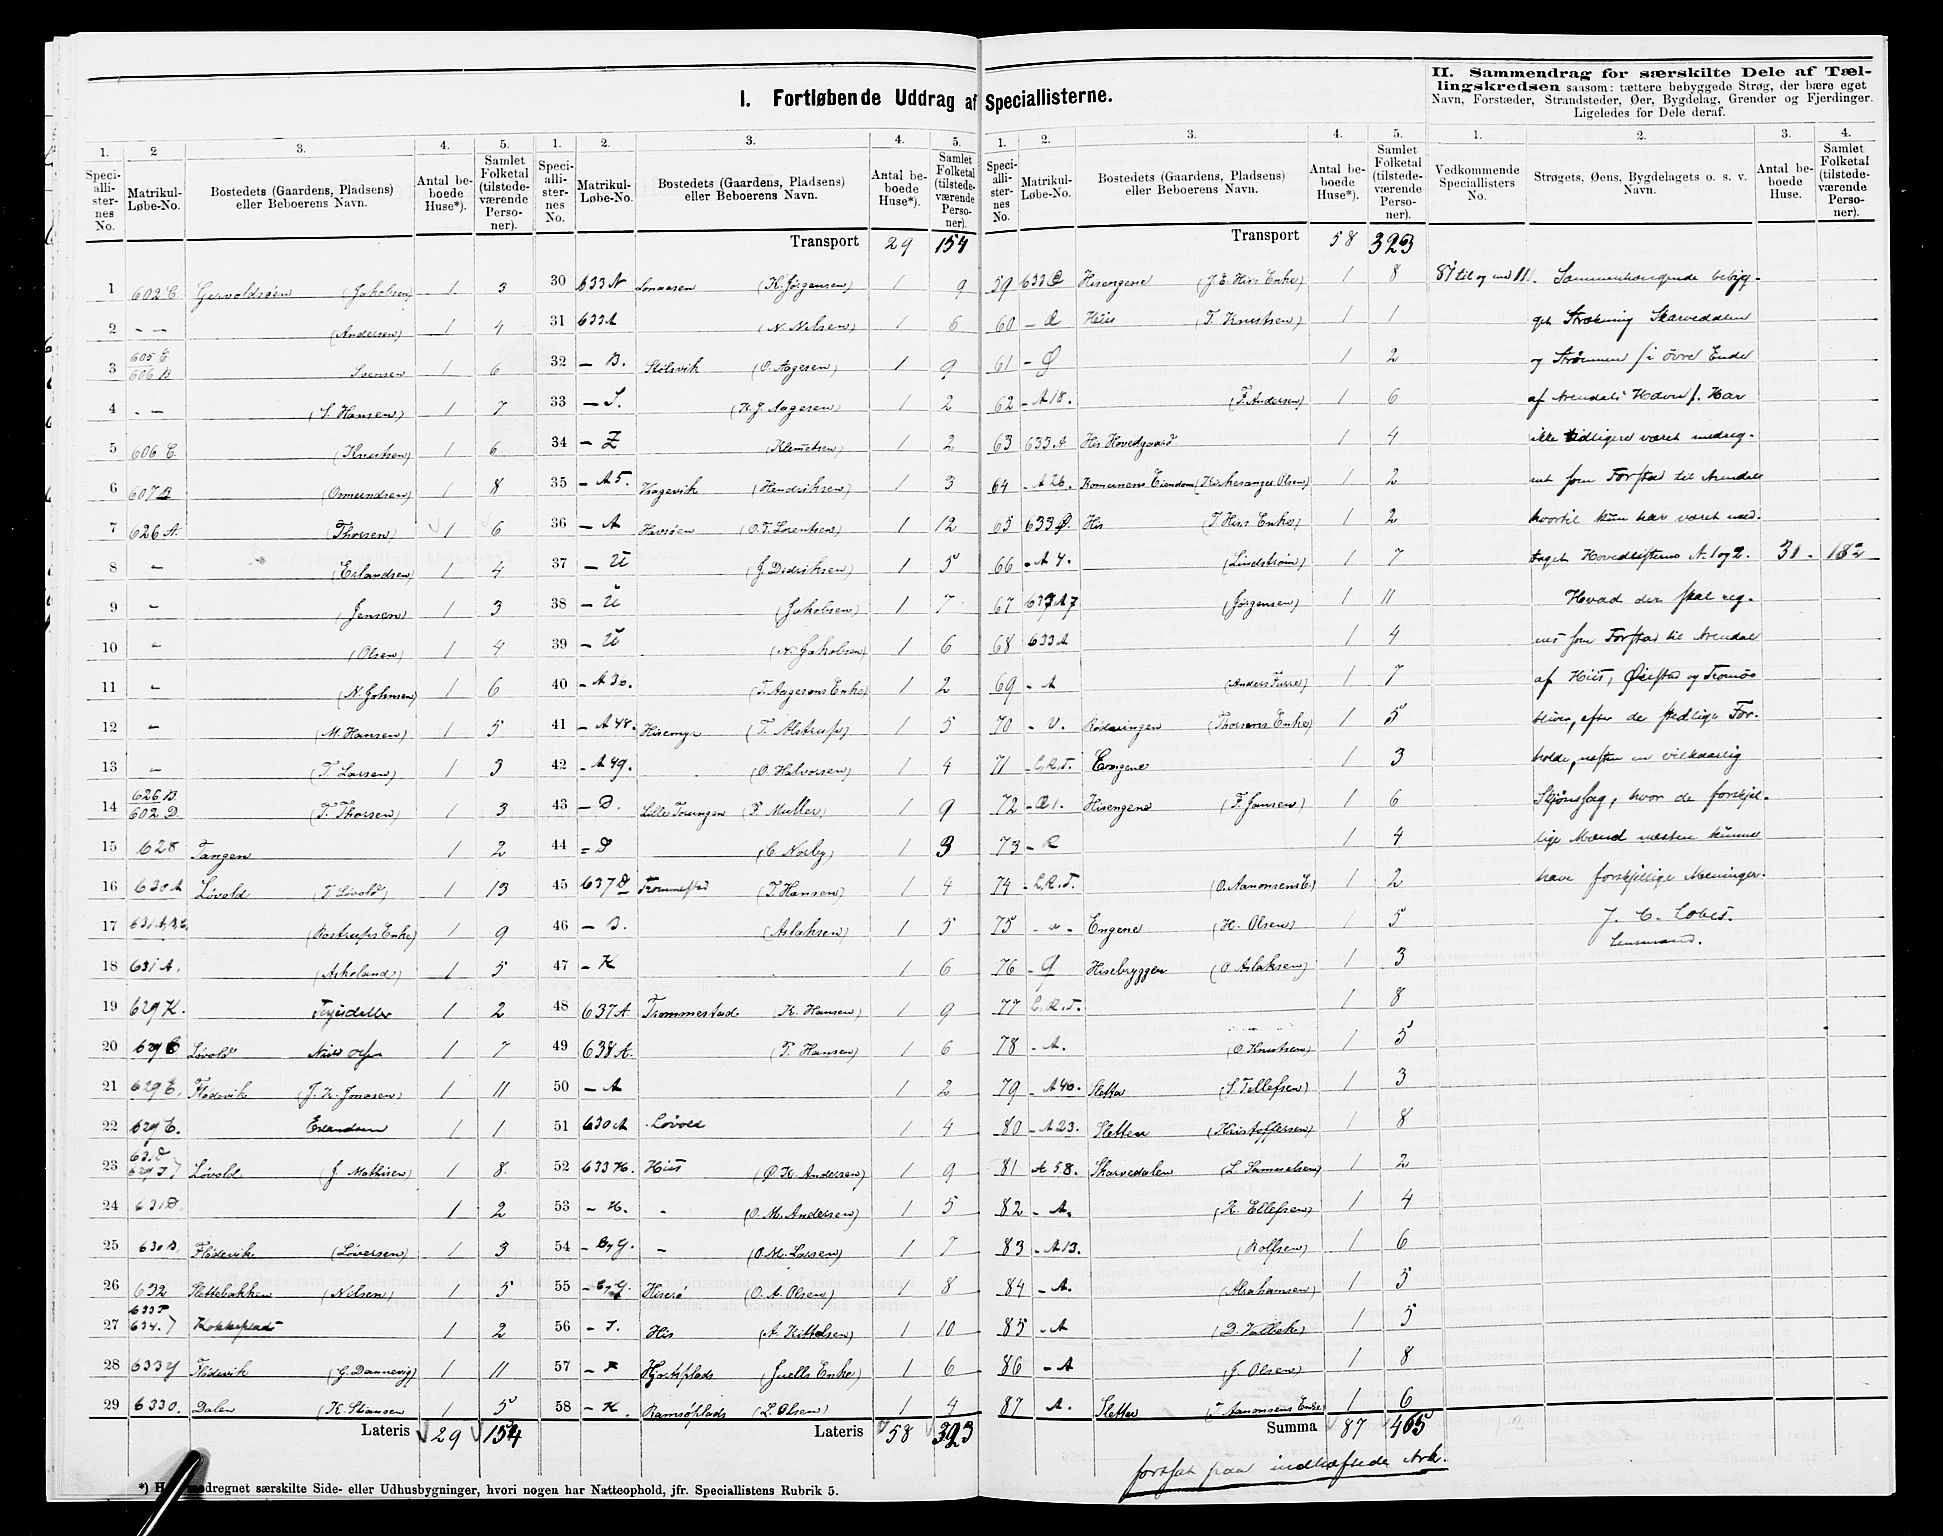 I. Fortløbende Uddrag af Speciallisterne.
1. Speci-alli-ster-nes No.
2 Matrikul-Løbe-No.
3. Bostedets (Gaardens, Pladsens) eller Beboerens Navn.
4. Antal be-boede Huse*).
5. Samlet Folketal (tilstede-værende Perso-ner).
1 602 C. Gervoldsøen (Jakobsen) 1 3
2 - - (Andersen) 1 4
3 605 C 606 B 1 6
4 - - (S. Hansen) 1 7
5 606 C. (Knutsen) 1 6
6 607 B (Osmundsen) 1 8
7 626 A. (Thorsen) 1 6
8 - (Erlandsen) 1 4
9 - (Jensen) 1 3
10 - (Olsen) 1 4
11 - (N. Johnsen) 1 6
12 - (M. Hansen) 1 5
13 - (T. Larsen) 1 3
14 626 B. 602 D. (T. Thorsen) 1 3
15 628 Tangen 1 2
16 630 A Løvold (T. Løvold) 1 13
17 (Rostrups Enke) 1 9
18 631 A. (Askeland) 1 5
19 629 K. 1 2
20 Løvold Niels 1 7
21 629 E. Flødevik (J. K. Jonasen) 1 11
22 629 E. Erlandsen 1 1
23 Løvold (J. Mathisen) 1 8.
24 631 D. 1 2
25 630 B. Flødevik (Løversen) 1 3
26 632 Slettebakken (Nilsen) 1 5
27 633 T 634. Kokkeplads 1 2
28 633 Y Flødevik (G. Dannevig) 1 11
29 633 O. Dalen (K. Stiansen 1 5
Lateris 29 154
1. Speci-alli-ster-nes No.
2. Matrikul-Løbe-No.
3. Bostedets (Gaardens, Pladsens) eller Beboerens Navn.
4. Antal be-boede Huse*).
5. Samlet Folketal (tilstede-værende Perso-ner).
Transport 29 154
30 633 N (K. Jørgensen) 1 9
31 633 A (N. Nilsen) 1 6
32 - B. Stølsvik (O. Aagesen) 1 9
33 - S. (K. J. Aagesen) 1 2
34 - Z (Klemetsen) 1 2
35 - A 5. Kragevik (Hendriksen) 1 3
36 - A Havsøen (O. T. Lorentsen) 1 12
37 - U (J. Didriksen) 1 5
38 - U (Jakobsen) 1 7
39 - U (N. Jakobsen) 1 6
40 - A 30. (T. Aagesens Enke) 1 2
41 - A 48. Hisemyr (T. Alstrup) 1 5
42 - A 49. (O. Halvorsen) 1 4
43 - D. Lille Torungen (P. Muller) 1 9
44 = D (C. Norby) 1 3
45 637 D Trommestad (T. Hansen) 1 4
46 - B. (Aslaksen) 1 5
47 - K 1 6
48 637 A Trommestad (K. Hansen) 1 9
49 638 A. (T. Hansen) 1 6
50 - A 1 2
51 630 A Løvold 1 4
52 633 H. Hiis (O. K. Andersen) 1 9
53 - H. - (O. M. Andersen) 1 5
54 - - (O. M. Larsen) 1 7
55 - Hiserø (O. A. Olsen) 1 8
56 - T. His (A. Kittelsen) 1 10
57 - (Juells Enke) 1 6
58 - K. Ramsøplads (L. Olsen) 1 4
Lateris 58 323
1. Speci-alli-ster-nes No.
2. Matrikul-Løbe-No.
3. Bostedets (Gaardens, Pladsens) eller Beboerens Navn.
4. Antal be-boede Huse*).
5. Samlet Folketal (tilstede-værende Perso-ner).
Transport 58 323
59 Hisengene (J. E. Hiis Enke) 1 8
60 Hiis (T. Knutsen) 1 1
61 - Ø 1 2
62 - A 18. (T. Andersen) 1 6
63 633 A. His Hovedgaard 1 4
64 - A 26. Komunens Eiendom (Kirkesanger Olsen) 1 2
65 633 His (T. Hiis Enke) 1 2
66 - A 4. (Lindstrøm) 1 7
67 (Jørgensen) 1 11
68 633 A 1 4
69 - A (Anders Furre) 1 7
70 - V. (Thorsens Enke) 1 5
71 - L, R, T. Engene 1 3
72 Hisengene (F. Jansen) 1 6
73 - R 1 4
74 - L. R. T. (O. Aanonsens E.) 1 2
75 - " - Engene (H. Olsen) 1 5
76 Hisebryggen (O Aslaksen) 1 3
77 L, R, T. 1 8
78 - A. (O. Knutsen) 1 5
79 - A 40. Sletta (S. Tellefsen) 1 3
80 - A 23. Sletten (Kristoffersen) 1 8
81 A 58. Skarvedalen (L. Samuelsen) 1 2
82 - A. (K. Ellefsen) 1 4
83 - A 13. (Rolfsen) 1 6
84 - A. (Abrahamsen) 1 5
85 - A 1 5
86 - A (J. Olsen) 1 8
87 A. Sletta (T. Aanonsens Enke) 1 6
Summa 87 465
fortsat paa indhæftede Ark.
II. Sammendrag for særskilte Dele af Tæl-
lingskredsen saasom: tættere bebyggede Strøg, der bære eget
Navn, Forstæder, Strandsteder, Øer, Bygdelag, Grender og Fjerdinger.
Ligeledes for Dele deraf.
1. Vedkommende Speciallisters No.
2. Strøgets, Øens, Bygdelagets o. s. v. Navn.
3. Antal be-boede Huse.
4. Samlet Folketal (tilstede-værende Perso-ner).
81 til og med 111. Sammenhængende bebyg-
get Strækning Skarvedalen
og Strømmen (i øvre Ende
af Arendals Havn). Har
ikke tidligere været medreg-
net som Forstad til Arendal
hvortil kun har været med-
taget Hovedlisterne N. 1 og 2. 31 - 182
Hvad der skal reg-
nes som Forstad til Arendal
af Hiis, Øiestad og Tromøe
bliver, efter de stedlige For-
holde, næsten en vilkaarlig
Skjønssag, hvor de forskjel-
lige Mænd næsten kunne
have forskjellige Meninger.
Lensmand.
*) medregnet særskilte Side- eller Udhusbygninger, hvori nogen har Natteophold, jfr. Speciallistens Rubrik 5.